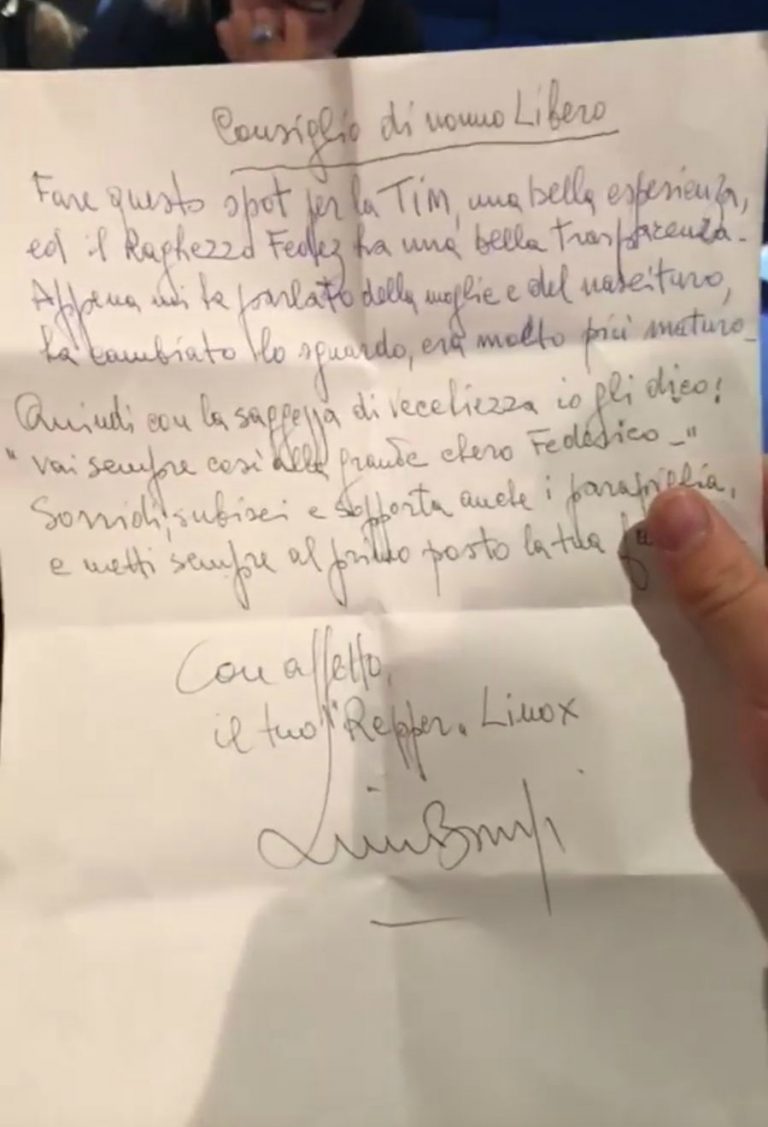 Consiglio di nonno Libero
Fare questo spot per la TIM, una bella esperienza,
ed il Raghezzo Fedez ha una bella trasparenza.
Appena mi ha parlato della moglie e del nascituro,
ha cambiato lo sguardo, era molto più maturo.
Quindi con la saggezza di vecchiezza io gli dico:
"vai sempre così alla grande chero Federico."
Sorridi, subisci e sopporta anche i parapiglia,
e metti sempre al primo posto la tua
Con affetto,
il tuo "Repper. Linox